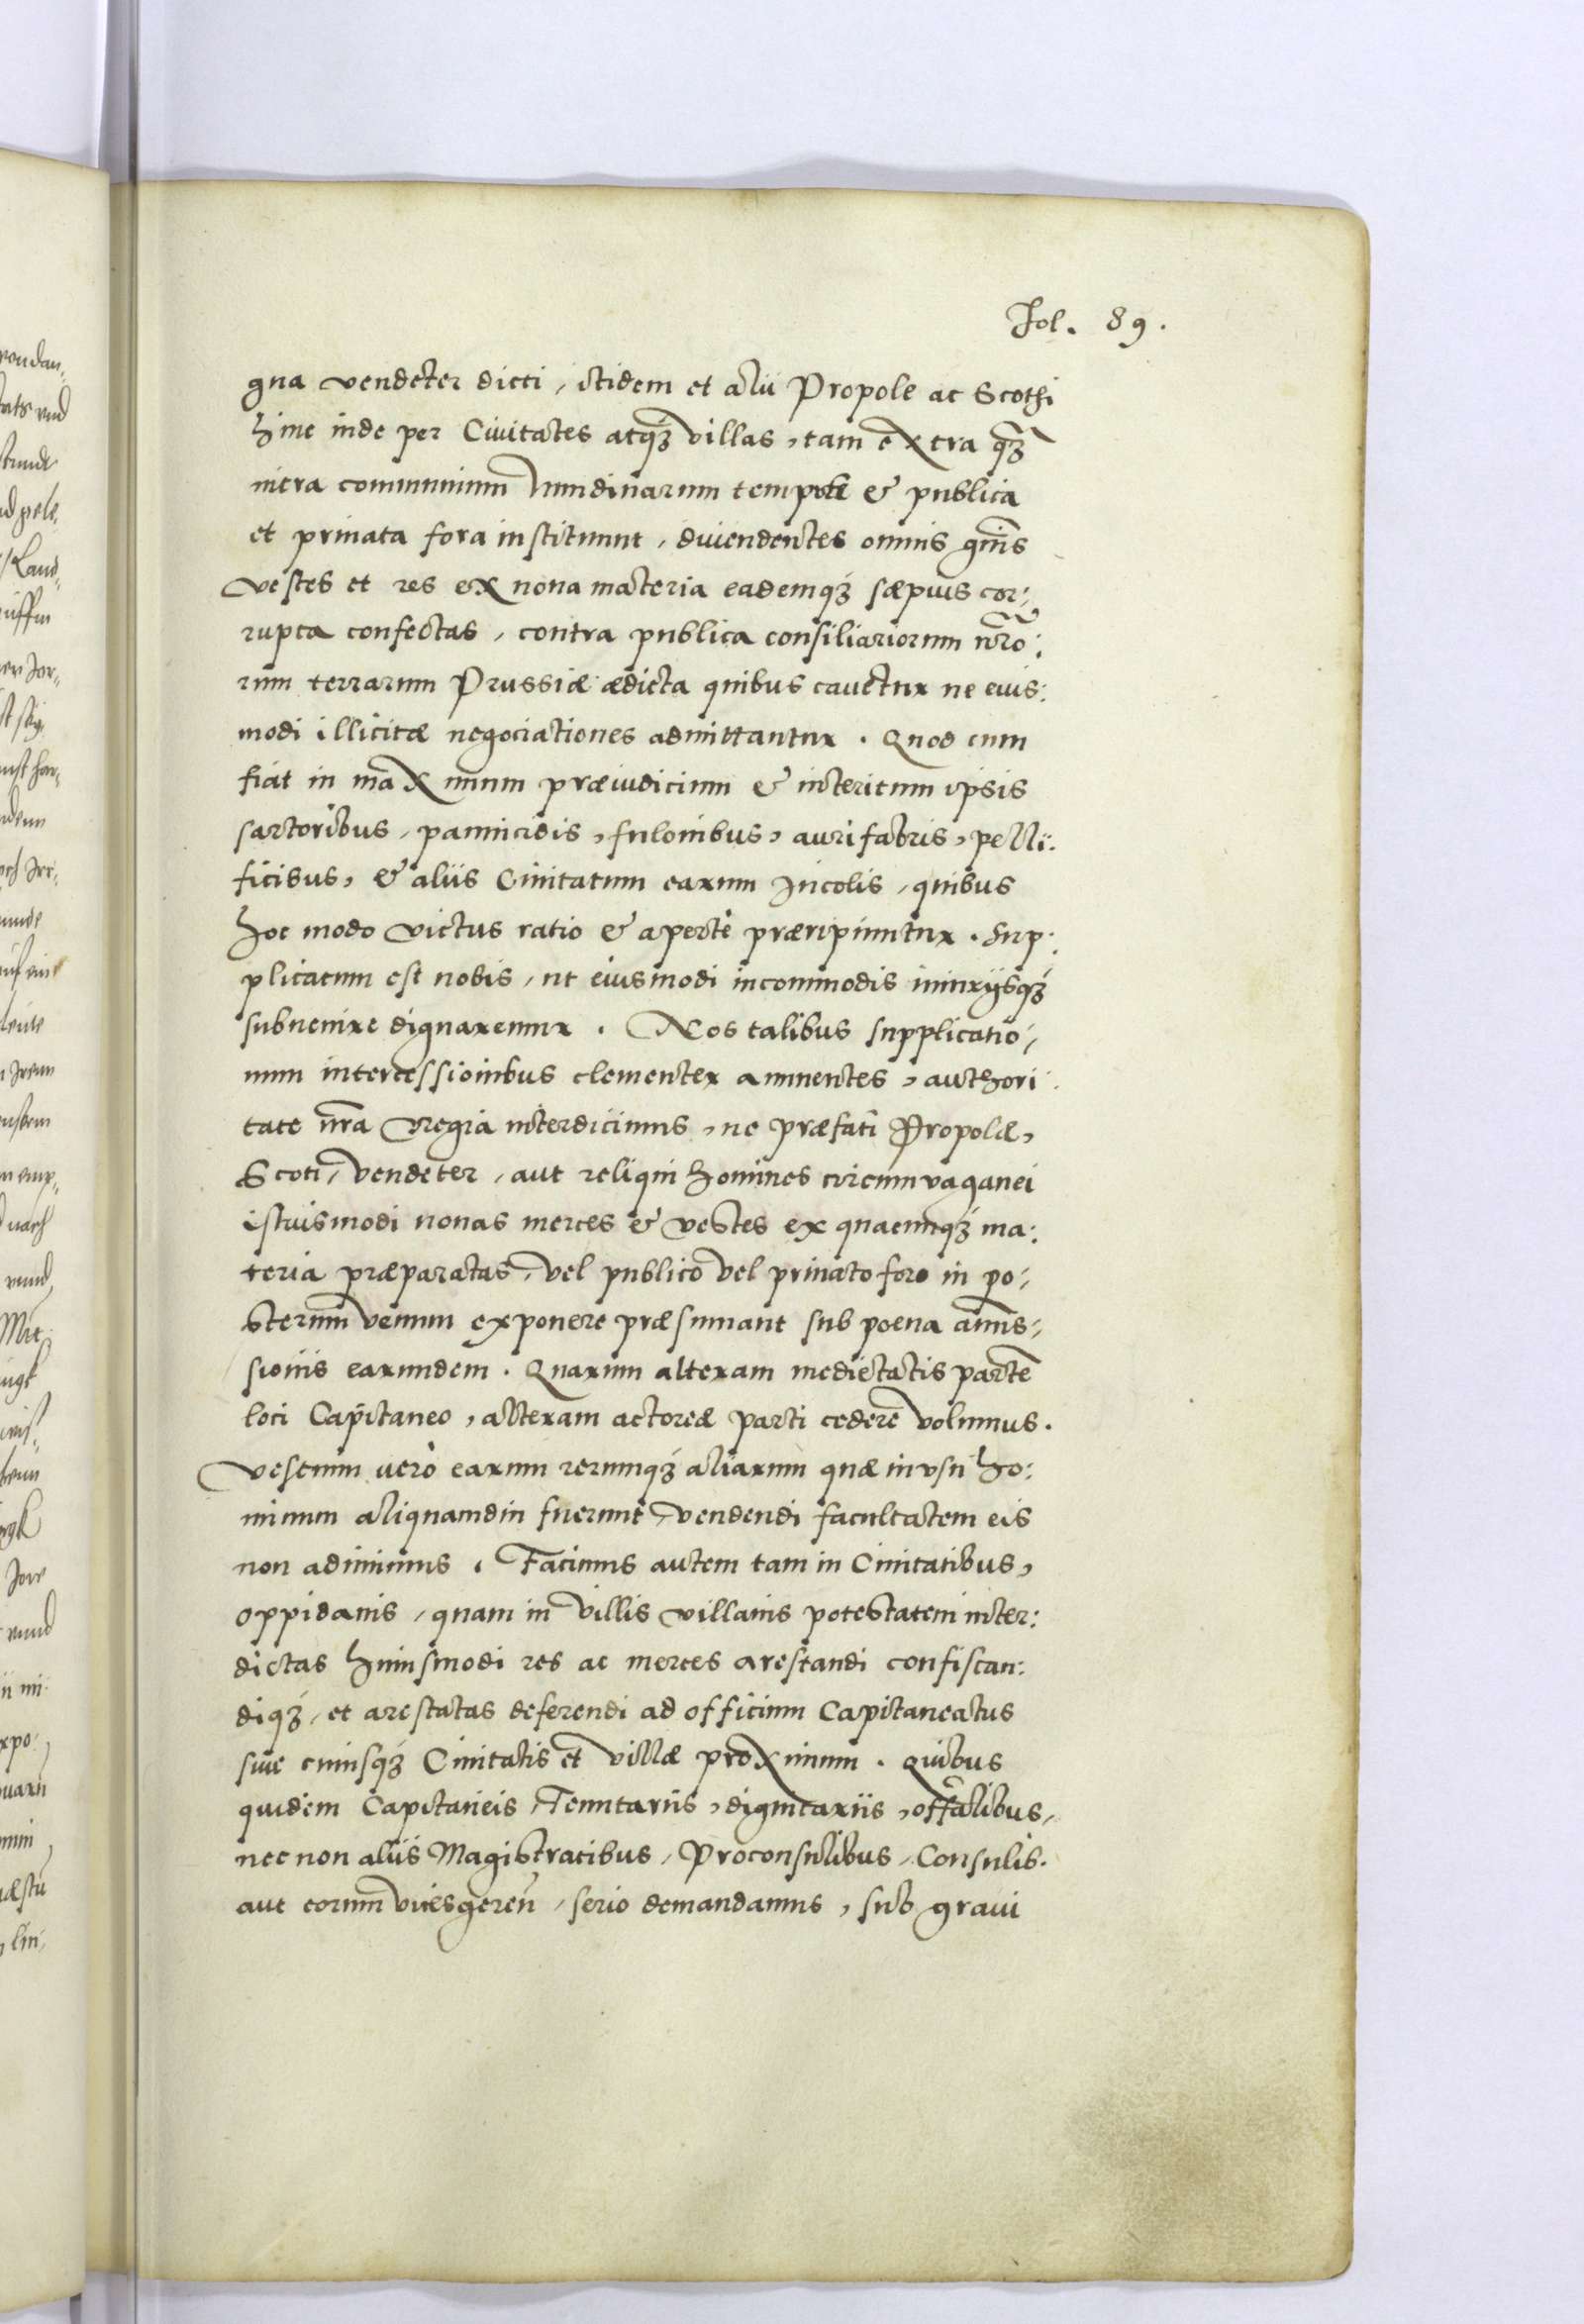 Fol. 89.
gua vendeter dicti, itidem et alii Propole ac Scothi
hinc inde per Ciuitates atqꝫ villas, tam extra qꝫ̄
intra communium Nundinarum tempore & publica
et priuata fora instituunt, diuendentes omnis gnīs
vestes et res ex noua materia eademqꝫ sæpius cor:
rupta confectas, contra publica consiliariorum nr̄o:
rum terrarum Prussiæ ædicta quibus cauetur ne eius:
modi illicitæ negociationes admittantur. Quod cum
fiat in maximum præiudicium & interitum ipsis
sartoribus, pannicidis, fulonibus, aurifabris, pelli:
ficibus, & aliis Ciuitatum earum Incolis, quibus
hoc modo victus ratio & aperte præripiuntur. Sup:
plicatum est nobis, ut eiusmodi incommodis iniurijsqꝫ
subuenire dignaremur. Nos talibus supplicatio:
num intercessionibus clementer annuentes, authori:
tate nr̄a Regia interdicimus, ne præfati Propolæ,
Scoti, vendeter, aut reliqui homines circumuaganei
istiusmodi nouas merces & vestes ex quacunqꝫ ma:
teria præparatas, vel publico vel priuato foro in po:
sterum venum exponere præsumant sub poena amis:
sionis earundem. Quarum alteram medietatis partē
loci Capitaneo, alteram actoreæ parti cedere volumus.
Vestium uero earum rerumqꝫ aliarum quæ in vsu ho:
minum aliquamdiu fuerunt, vendendi facultatem eis
non adimimus. Facimus autem tam in Ciuitatibus,
oppidanis, quam in villis villanis potestatem inter:
dictas huiusmodi res ac merces arestandi confiscan:
diqꝫ, et arestatas deferendi ad officium Capitaneatus
siue cuiusqꝫ Ciuitatis et villæ proximum. Quibus
quidem Capitaneis, Tenutariis, dignitariis, offālibus,
nec non aliis Magistratibus, Proconsulibus, Consulib.
aut eorum vicesgeren̄, serio demandamus, sub graui